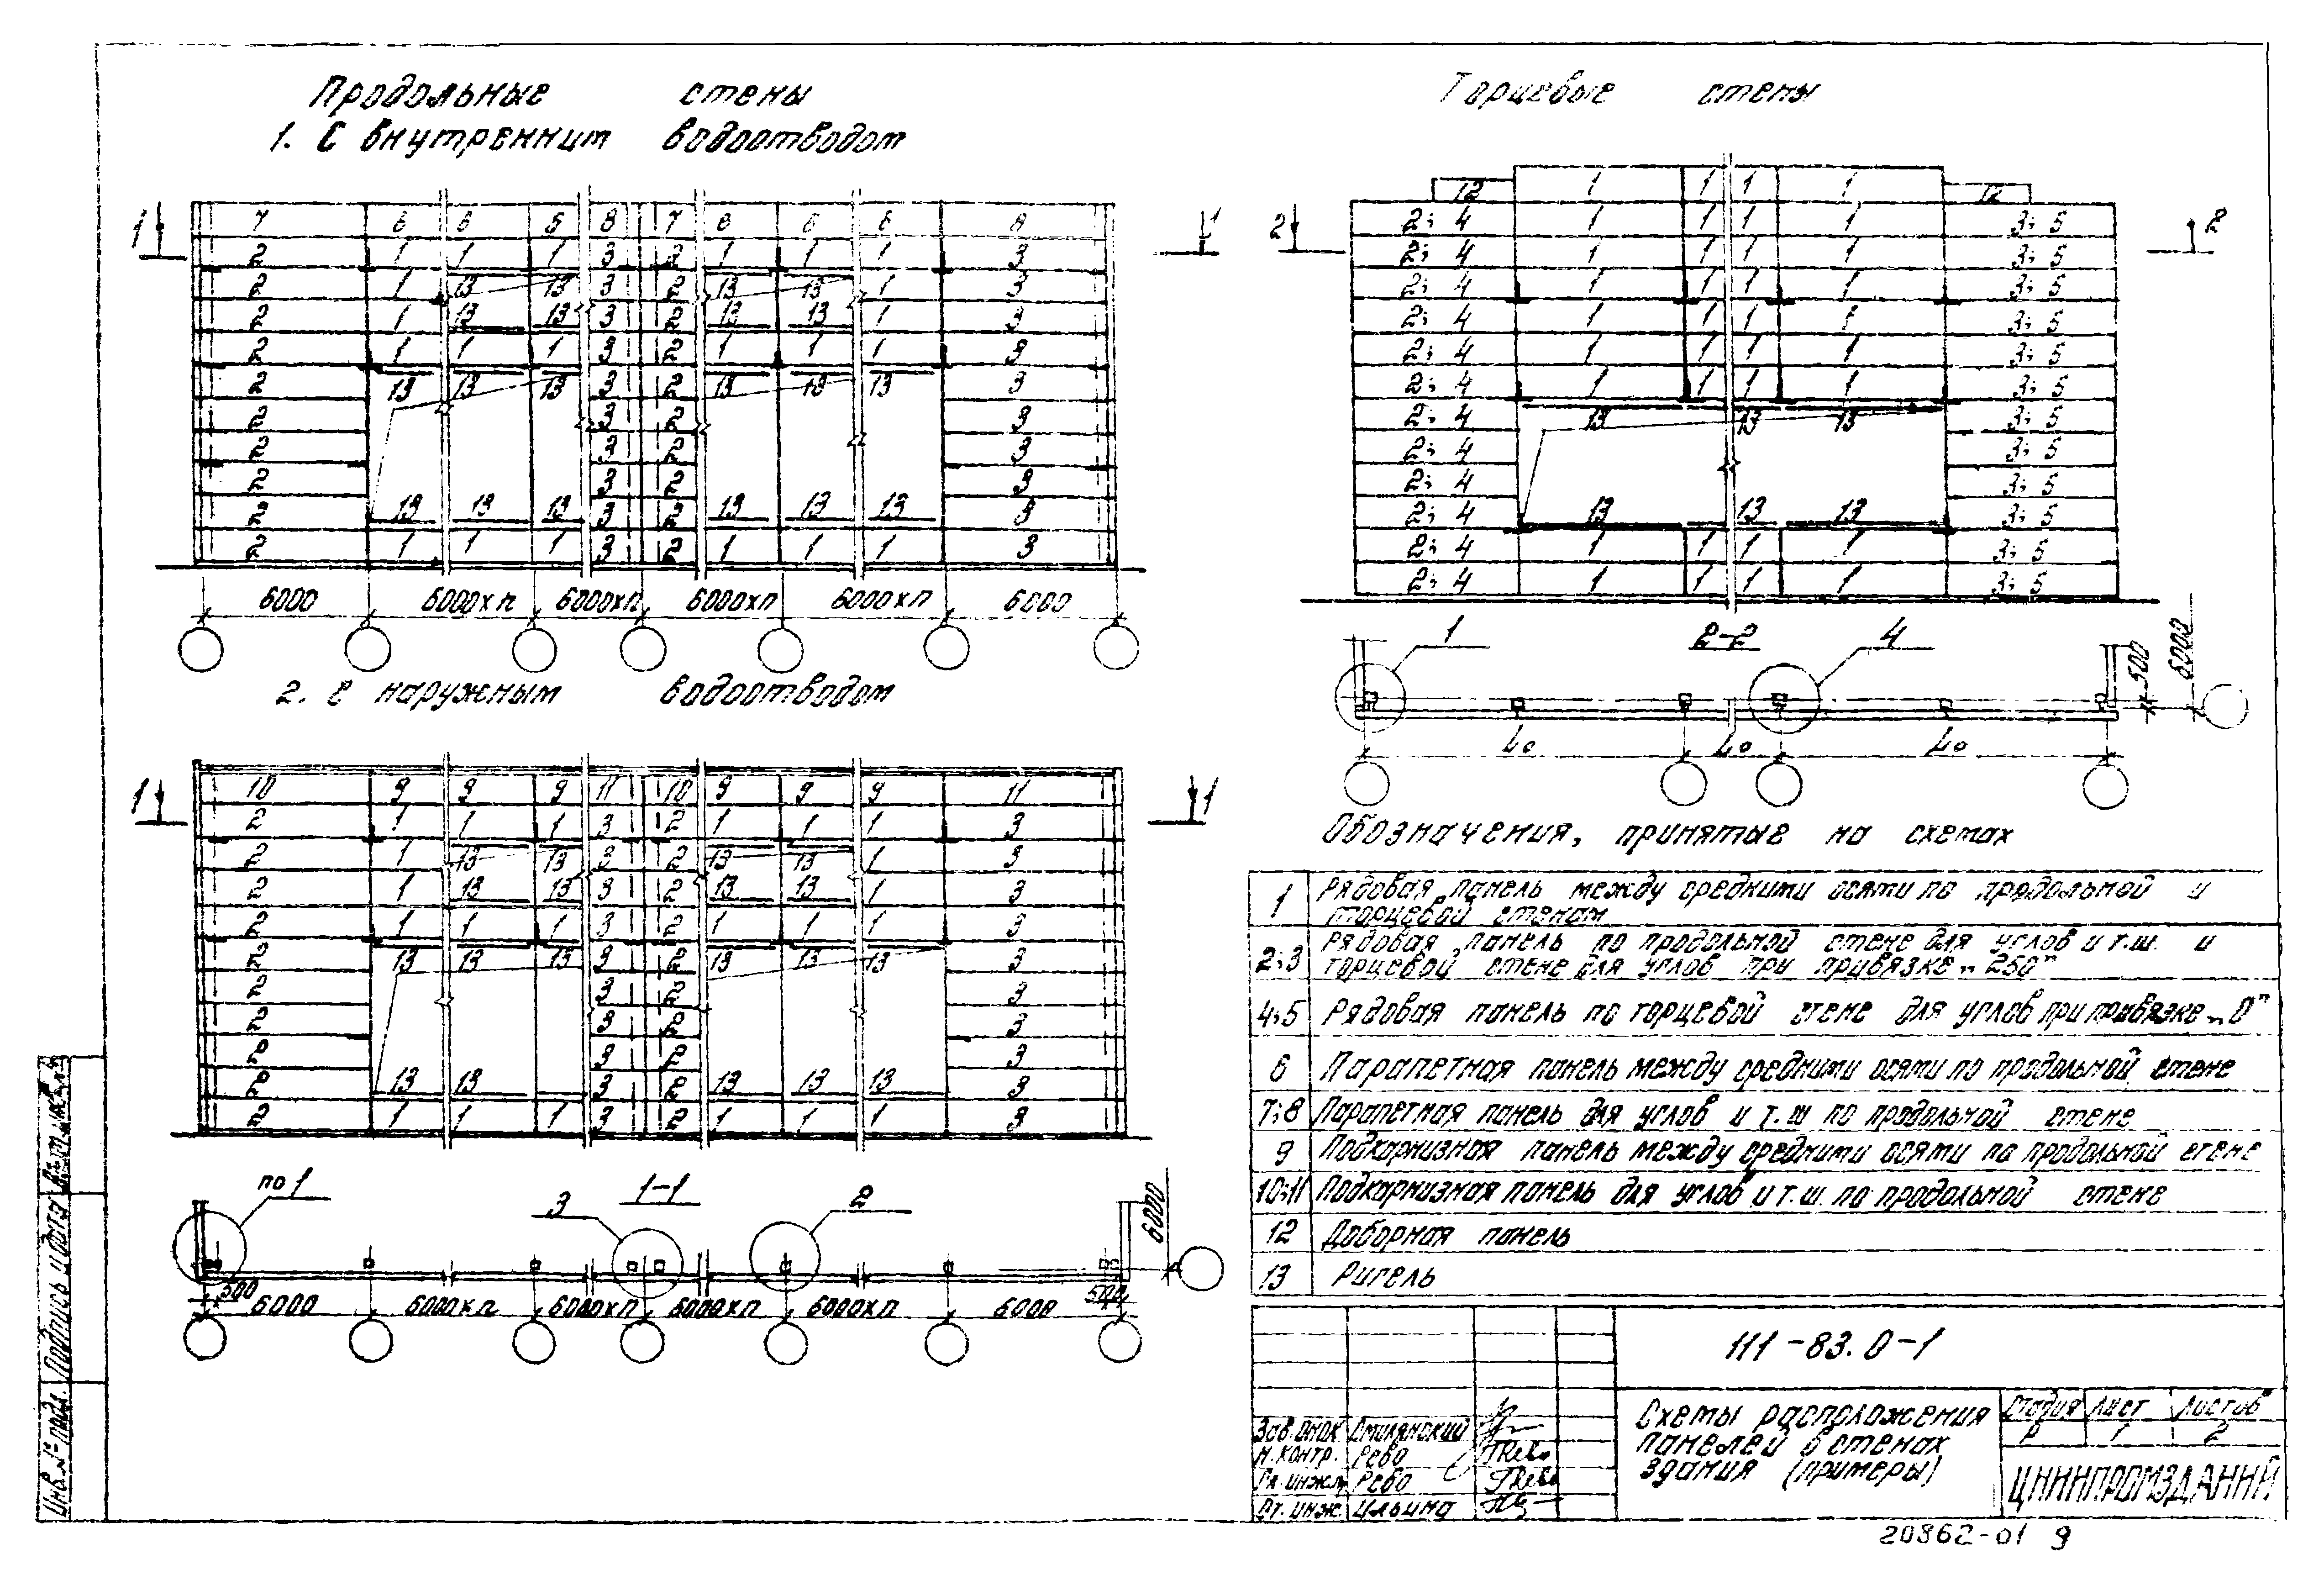 Продольные стены
1. С внутренним водоотводом
7 6 6 5 8 7 6 6 6 8
2 1 1 1 3 2 1 1 1 3
2 1 13 13 3 2 13 13 1 3
2 1 13 13 3 2 13 13 1 3
2 1 1 1 3 2 1 1 1 3
2 13 13 13 3 2 13 13 13 3
2 3 2 3
2 3 2 3
2 3 2 3
2 13 13 13 3 2 13 13 13 3
2 1 1 1 3 2 1 1 1 3
1 1
6000 6000хп 6000хп 6000хп 6000хп 6000
2. С наружным водоотводом
10 9 9 9 11 10 9 9 9 11
2 1 1 1 3 2 1 1 1 3
2 1 13 13 3 2 13 13 1 3
2 1 13 13 3 2 13 13 1 3
2 1 1 1 3 2 1 1 1 3
2 13 13 13 3 2 13 13 13 3
2 3 2 3
2 3 2 3
2 3 2 3
2 13 13 3 2 13 13 13 3
2 1 1 1 3 2 1 1 1 3
1 1
по 1 3 1-1 2
6000
500 500
6000 6000хп 6000хп 6000хп 6000хп 6000
Торцевые стены
12 1 1 1 1 12
2 2
2;4 1 1 1 1 3;5
2;4 1 1 1 1 3;5
2;4 1 1 1 1 3;5
2;4 1 1 1 1 3;5
2;4 1 1 1 1 3;5
2;4 1 1 1 1 3;5
2;4 13 13 13 3;5
2;4 3;5
2;4 3;5
2;4 13 13 13 3;5
2;4 1 1 1 1 3;5
2;4 1 1 1 1 3;5
1 2-2 4
500 6000
Lо Lо Lо
Обозначения, принятые на схемах
1 Рядовая панель между средними осями по продольной и
торцевой стенам
2;3 Рядовая панель по продольной стене для углов и т.ш. и
торцевой стене для углов при привязке „250"
4;5 Рядовая панель по торцевой стене для углов при привязке „0"
6 Парапетная панель между средними осями по продольной стене
7;8 Парапетная панель для углов и т.ш по продольной стене
9 Подкарнизная панель между средними осями по продольной стене
10;11 Подкарнизная панель для углов и т.ш. по продольной стене
12 Доборная панель
13 Ригель
111-83.0-1
Схемы расположения
панелей в стенах
здания (примеры)
Стадия Лист Листов
Р 1 2
ЦНИИПРОМЗДАНИЙ
Зав. Смилянский
Н.контр. Рево
Гл.инж. Рево
Ст. инж. Ильина
Инв.№ подл. Подпись и дата
20862-01 9